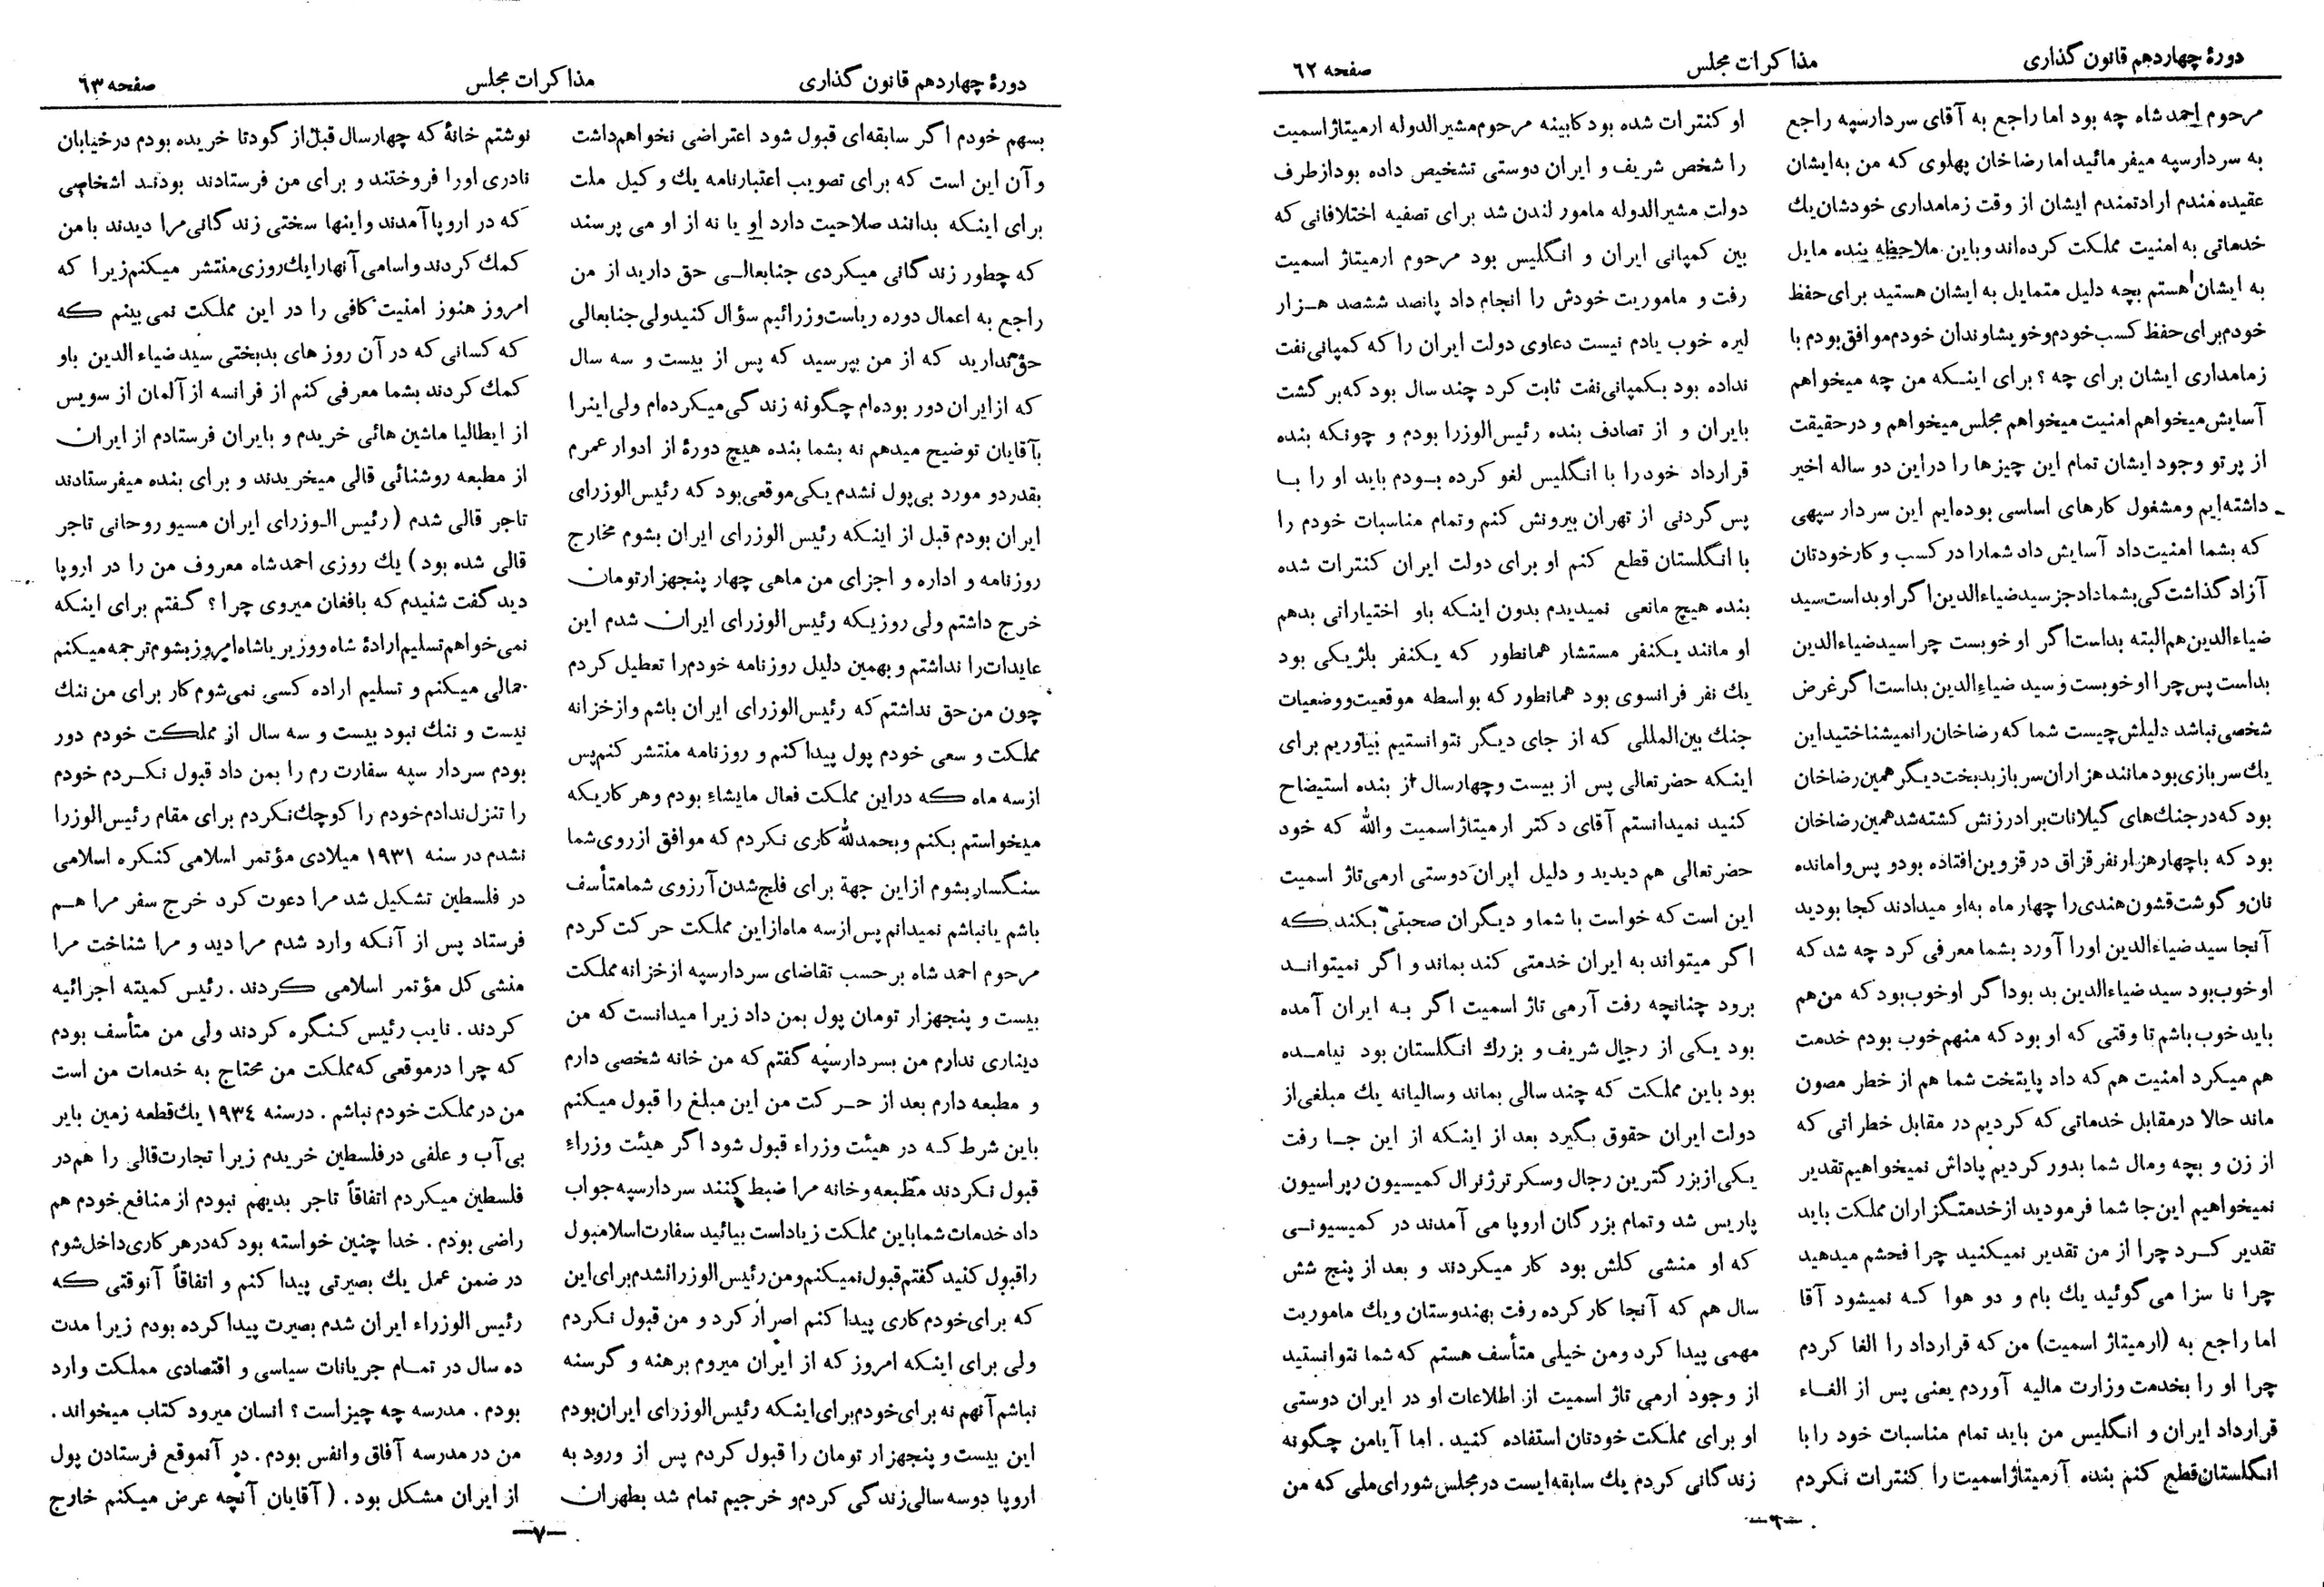 دورهٔ چهاردهم قانون گذاری
مذاکرات مجلس
صفحه ٦٢
مرحوم احمد شاه چه بود اما راجع به آقای سردارسپه راجع
به سردارسپه میفرمائید اما رضاخان پهلوی که من به‌ایشان
عقیده مندم ارادتمندم ایشان از وقت زمامداری خودشان یك
خدماتی به امنیت مملکت کرده‌اند و باین ملاحظه بنده مایل
به ایشان هستم بچه دلیل متمایل به ایشان هستید برای حفظ
خودم برای حفظ کسب خودم و خویشاوندان خودم موافق بودم با
زمامداری ایشان برای چه ؟ برای اینـکه من چه میخواهم
آسایش میخواهم امنیت میخواهم مجلس میخواهم و در حقیقت
از پرتو وجود ایشان تمام این چیزها را دراین دو ساله اخیر
داشته‌ایم و مشغول کارهای اساسی بوده‌ایم این سردار سپهی
که بشما امنیت داد آسایش داد شمارا در کسب و کار خودتان
آزاد گذاشت کی بشما داد جز سید ضیاءالدین اگر او بد است سید
ضیاءالدین هم البته بد است اگر او خوبست چرا سید ضیاءالدین
بد است پس چرا او خوبست و سید ضیاءالدین بد است اگر غرض
شخصی نباشد دلیلش چیست شما که رضاخان را نمیشناختید این
یك سربازی بود مانند هزاران سرباز بدبخت دیگر همین رضاخان
بود که در جنك‌های گیلانات برادر زنش کشته شد همین رضاخان
بود که با چهار هزار نفر قزاق در قزوین افتاده بود و پس وامانده
نان و گوشت قشون هندی را چهار ماه به‌او میدادند کجا بودید
آنجا سید ضیاءالدین اورا آورد بشما معرفی کرد چه شد که
او خوب بود سید ضیاءالدین بد بود اگر او خوب بود که من هم
باید خوب باشم تا وقتی که او بود که منهم خوب بودم خدمت
هم میکرد امنیت هم که داد پایتخت شما هم از خطر مصون
ماند حالا در مقابل خدماتی که کردیم در مقابل خطراتی که
از زن و بچه و مال شما بدور کردیم پاداش نمیخواهیم تقدیر
نمیخواهیم این جا شما فرمودید از خدمتگزاران مملکت باید
تقدیر کـرد چرا از من تقدیر نمیکنید چرا فحشم میدهید
چرا نا سزا می گوئید یك بام و دو هوا کـه نمیشود آقا
اما راجع به (ارمیتاژ اسمیت) من که قرارداد را الغا کردم
چرا او را بخدمت وزارت مالیه آوردم یعنی پس از الغـاء
قرارداد ایران و انگلیس من باید تمام مناسبات خود را با
انگلستان قطع کنم بنده آرمیتاژ اسمیت را کنترات نکردم
او کنترات شده بود کابینه مرحوم مشیرالدوله ارمیتاژ اسمیت
را شخص شریف و ایران دوستی تشخیص داده بود از طرف
دولت مشیرالدوله مامور لندن شد برای تصفیه اختلافاتی که
بین کمپانی ایران و انگلیس بود مرحوم ارمیتاژ اسمیت
رفت و ماموریت خودش را انجام داد پانصد ششصد هـزار
لیره خوب یادم نیست دعاوی دولت ایران را که کمپانی نفت
نداده بود بکمپانی نفت ثابت کرد چند سال بود که برگشت
بایران و از تصادف بنده رئیس الوزرا بودم و چونکه بنده
قرارداد خود را با انگلیس لغو کرده بـودم باید او را بـا
پس گردنی از تهران بیرونش کنم و تمام مناسبات خودم را
با انگلستان قطع کنم او برای دولت ایران کنترات شده
بنده هیچ مانعی نمیدیدم بدون اینکه باو اختیاراتی بدهم
او مانند یکنفر مستشار همانطور که یکنفر بلژیکی بود
یك نفر فرانسوی بود همانطور که بواسطه موقعیت و وضعیات
جنك بین‌المللی که از جای دیگر نتوانستیم بیاوریم برای
اینکه حضرتعالی پس از بیست و چهار سال از بنده استیضاح
کنید نمیدانستم آقای دکتر ارمیتاژ اسمیت والله که خود
حضرتعالی هم دیدید و دلیل ایران دوستی ارمی‌تاژ اسمیت
این است که خواست با شما و دیگران صحبتی بکند که
اگر میتواند به ایران خدمتی کند بماند و اگر نمیتوانـد
برود چنانچه رفت آرمی تاژ اسمیت اگر بـه ایران آمده
بود یکی از رجال شریف و بزرك انگلستان بود نیامـده
بود باین مملکت که چند سالی بماند و سالیانه یك مبلغی از
دولت ایران حقوق بگیرد بعد از اینکه از این جـا رفت
یکی از بزرگترین رجال و سکرترژنرال کمیسیون رپراسیون
پاریس شد و تمام بزرگان اروپا می آمدند در کمیسیونـی
که او منشی کلش بود کار میکردند و بعد از پنج شش
سال هم که آنجا کار کرده رفت بهندوستان و یك ماموریت
مهمی پیدا کرد و من خیلی متأسف هستم که شما نتوانستید
از وجود ارمی تاژ اسمیت از اطلاعات او در ایران دوستی
او برای مملکت خودتان استفاده کنید . اما آیا من چگونه
زندگانی کردم یك سابقه ایست در مجلس شورای ملی که من
—٦—
دورهٔ چهاردهم قانون گذاری
مذاکرات مجلس
صفحه ٦٣
بسهم خودم اگر سابقه‌ای قبول شود اعتراضی نخواهم داشت
و آن این است که برای تصویب اعتبارنامه یك وکیل ملت
برای اینـکه بدانند صلاحیت دارد او یا نه از او می پرسند
که چطور زندگانی میکردی جنابعالـی حق دارید از من
راجع به اعمال دوره ریاست وزرائیم سؤال کنید ولی جنابعالی
حق ندارید که از من بپرسید که پس از بیست و سه سال
که از ایران دور بوده‌ام چگونه زندگی میکرده‌ام ولی اینرا
بآقایان توضیح میدهم نه بشما بنده هیچ دورهٔ از ادوار عمرم
بقدر دو مورد بی‌پول نشدم یکی موقعی بود که رئیس الوزرای
ایران بودم قبل از اینکه رئیس الوزرای ایران بشوم مخارج
روزنامه و اداره و اجزای من ماهی چهار پنجهزار تومان
خرج داشتم ولی روزیکه رئیس الوزرای ایران شدم این
عایدات را نداشتم و بهمین دلیل روزنامه خودم را تعطیل کردم
چون من حق نداشتم که رئیس الوزرای ایران باشم و از خزانه
مملکت و سعی خودم پول پیدا کنم و روزنامه منتشر کنم پس
از سه ماه که دراین مملکت فعال مایشاء بودم و هر کاریکه
میخواستم بکنم و بحمدلله کاری نکردم که موافق ازروی شما
سنگسار بشوم از این جهة برای فلج شدن آرزوی شما متأسف
باشم یا نباشم نمیدانم پس از سه ماه از این مملکت حرکت کردم
مرحوم احمد شاه برحسب تقاضای سردارسپه از خزانه مملکت
بیست و پنجهزار تومان پول بمن داد زیرا میدانست که من
دیناری ندارم من بسردارسپه گفتم که من خانه شخصی دارم
و مطبعه دارم بعد از حـرکت من این مبلغ را قبول میکنم
باین شرط کـه در هیئت وزراء قبول شود اگر هیئت وزراء
قبول نکردند مطبعه و خانه مرا ضبط کنند سردارسپه جواب
داد خدمات شما باین مملکت زیاد است بیائید سفارت اسلامبول
را قبول کنید گفتم قبول نمیکنم و من رئیس الوزرا نشدم برای این
که برای خودم کاری پیدا کنم اصرار کرد و من قبول نکردم
ولی برای اینکه امروز که از ایران میروم برهنه و گرسنه
نباشم آنهم نه برای خودم برای اینکه رئیس الوزرای ایران بودم
این بیست و پنجهزار تومان را قبول کردم پس از ورود به
اروپا دوسه سالی زندگی کردم و خرجیم تمام شد بطهران
نوشتم خانهٔ که چهار سال قبل از کودتا خریده بودم در خیابان
نادری اورا فروختند و برای من فرستادند بودند اشخاصی
که در اروپا آمدند و اینها سختی زندگانی مرا دیدند با من
کمك کردند و اسامی آنها را یك روزی منتشر میکنم زیرا که
امروز هنوز امنیت کافی را در این مملکت نمی بینم که
که کسانی که در آن روزهای بدبختی سید ضیاءالدین باو
کمك کردند بشما معرفی کنم از فرانسه از آلمان از سویس
از ایطالیا ماشین هائی خریدم و بایران فرستادم از ایران
از مطبعه روشنائی قالی میخریدند و برای بنده میفرستادند
تاجر قالی شدم (رئیس الوزرای ایران مسیو روحانی تاجر
قالی شده بود) یك روزی احمد شاه معروف من را در اروپا
دید گفت شنیدم که بافغان میروی چرا ؟ گفتم برای اینکه
نمی خواهم تسلیم ارادهٔ شاه و وزیر یا شاه امروز بشوم ترجمه میکنم
حمالی میکنم و تسلیم اراده کسی نمی شوم کار برای من ننك
نیست و ننك نبود بیست و سه سال از مملکت خودم دور
بودم سردار سپه سفارت رم را بمن داد قبول نکـردم خودم
را تنزل ندادم خودم را کوچك نکردم برای مقام رئیس الوزرا
نشدم در سنه ١٩٣١ میلادی مؤتمر اسلامی کنگره اسلامی
در فلسطین تشکیل شد مرا دعوت کرد خرج سفر مرا هـم
فرستاد پس از آنکه وارد شدم مرا دید و مرا شناخت مرا
منشی کل مؤتمر اسلامی کردند . رئیس کمیته اجرائیه
کردند . نایب رئیس کنگره کردند ولی من متأسف بودم
که چرا در موقعی که مملکت من محتاج به خدمات من است
من در مملکت خودم نباشم . در سنه ١٩٣٤ یك قطعه زمین بایر
بی آب و علفی در فلسطین خریدم زیرا تجارت قالی را هم در
فلسطین میکردم اتفاقاً تاجر بدیهم نبودم از منافع خودم هم
راضی بودم . خدا چنین خواسته بود که در هر کاری داخل شوم
در ضمن عمل یك بصیرتی پیدا کنم و اتفاقاً آنوقتی که
رئیس الوزراء ایران شدم بصیرت پیدا کرده بودم زیرا مدت
ده سال در تمـام جریانات سیاسی و اقتصادی مملکت وارد
بودم . مدرسه چه چیز است ؟ انسان میرود کتاب میخواند .
من در مدرسه آفاق و انفس بودم . در آنموقع فرستادن پول
از ایران مشکل بود . (آقایان آنچه عرض میکنم خارج
—٧—